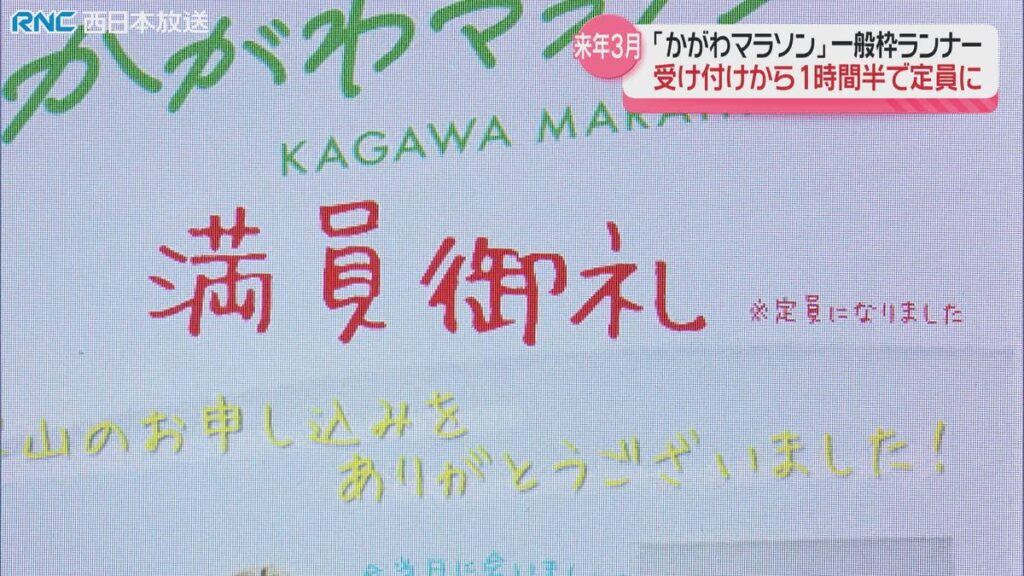 RNC 西日本放送
来年3月
「かがわマラソン」一般枠ランナー
受け付けから1時間半で定員に
かがわマラソ
KAGAWA MARA
満員御礼
※定員になりました
山のお申し込みを
ありがとうございました!
当日に会いまし